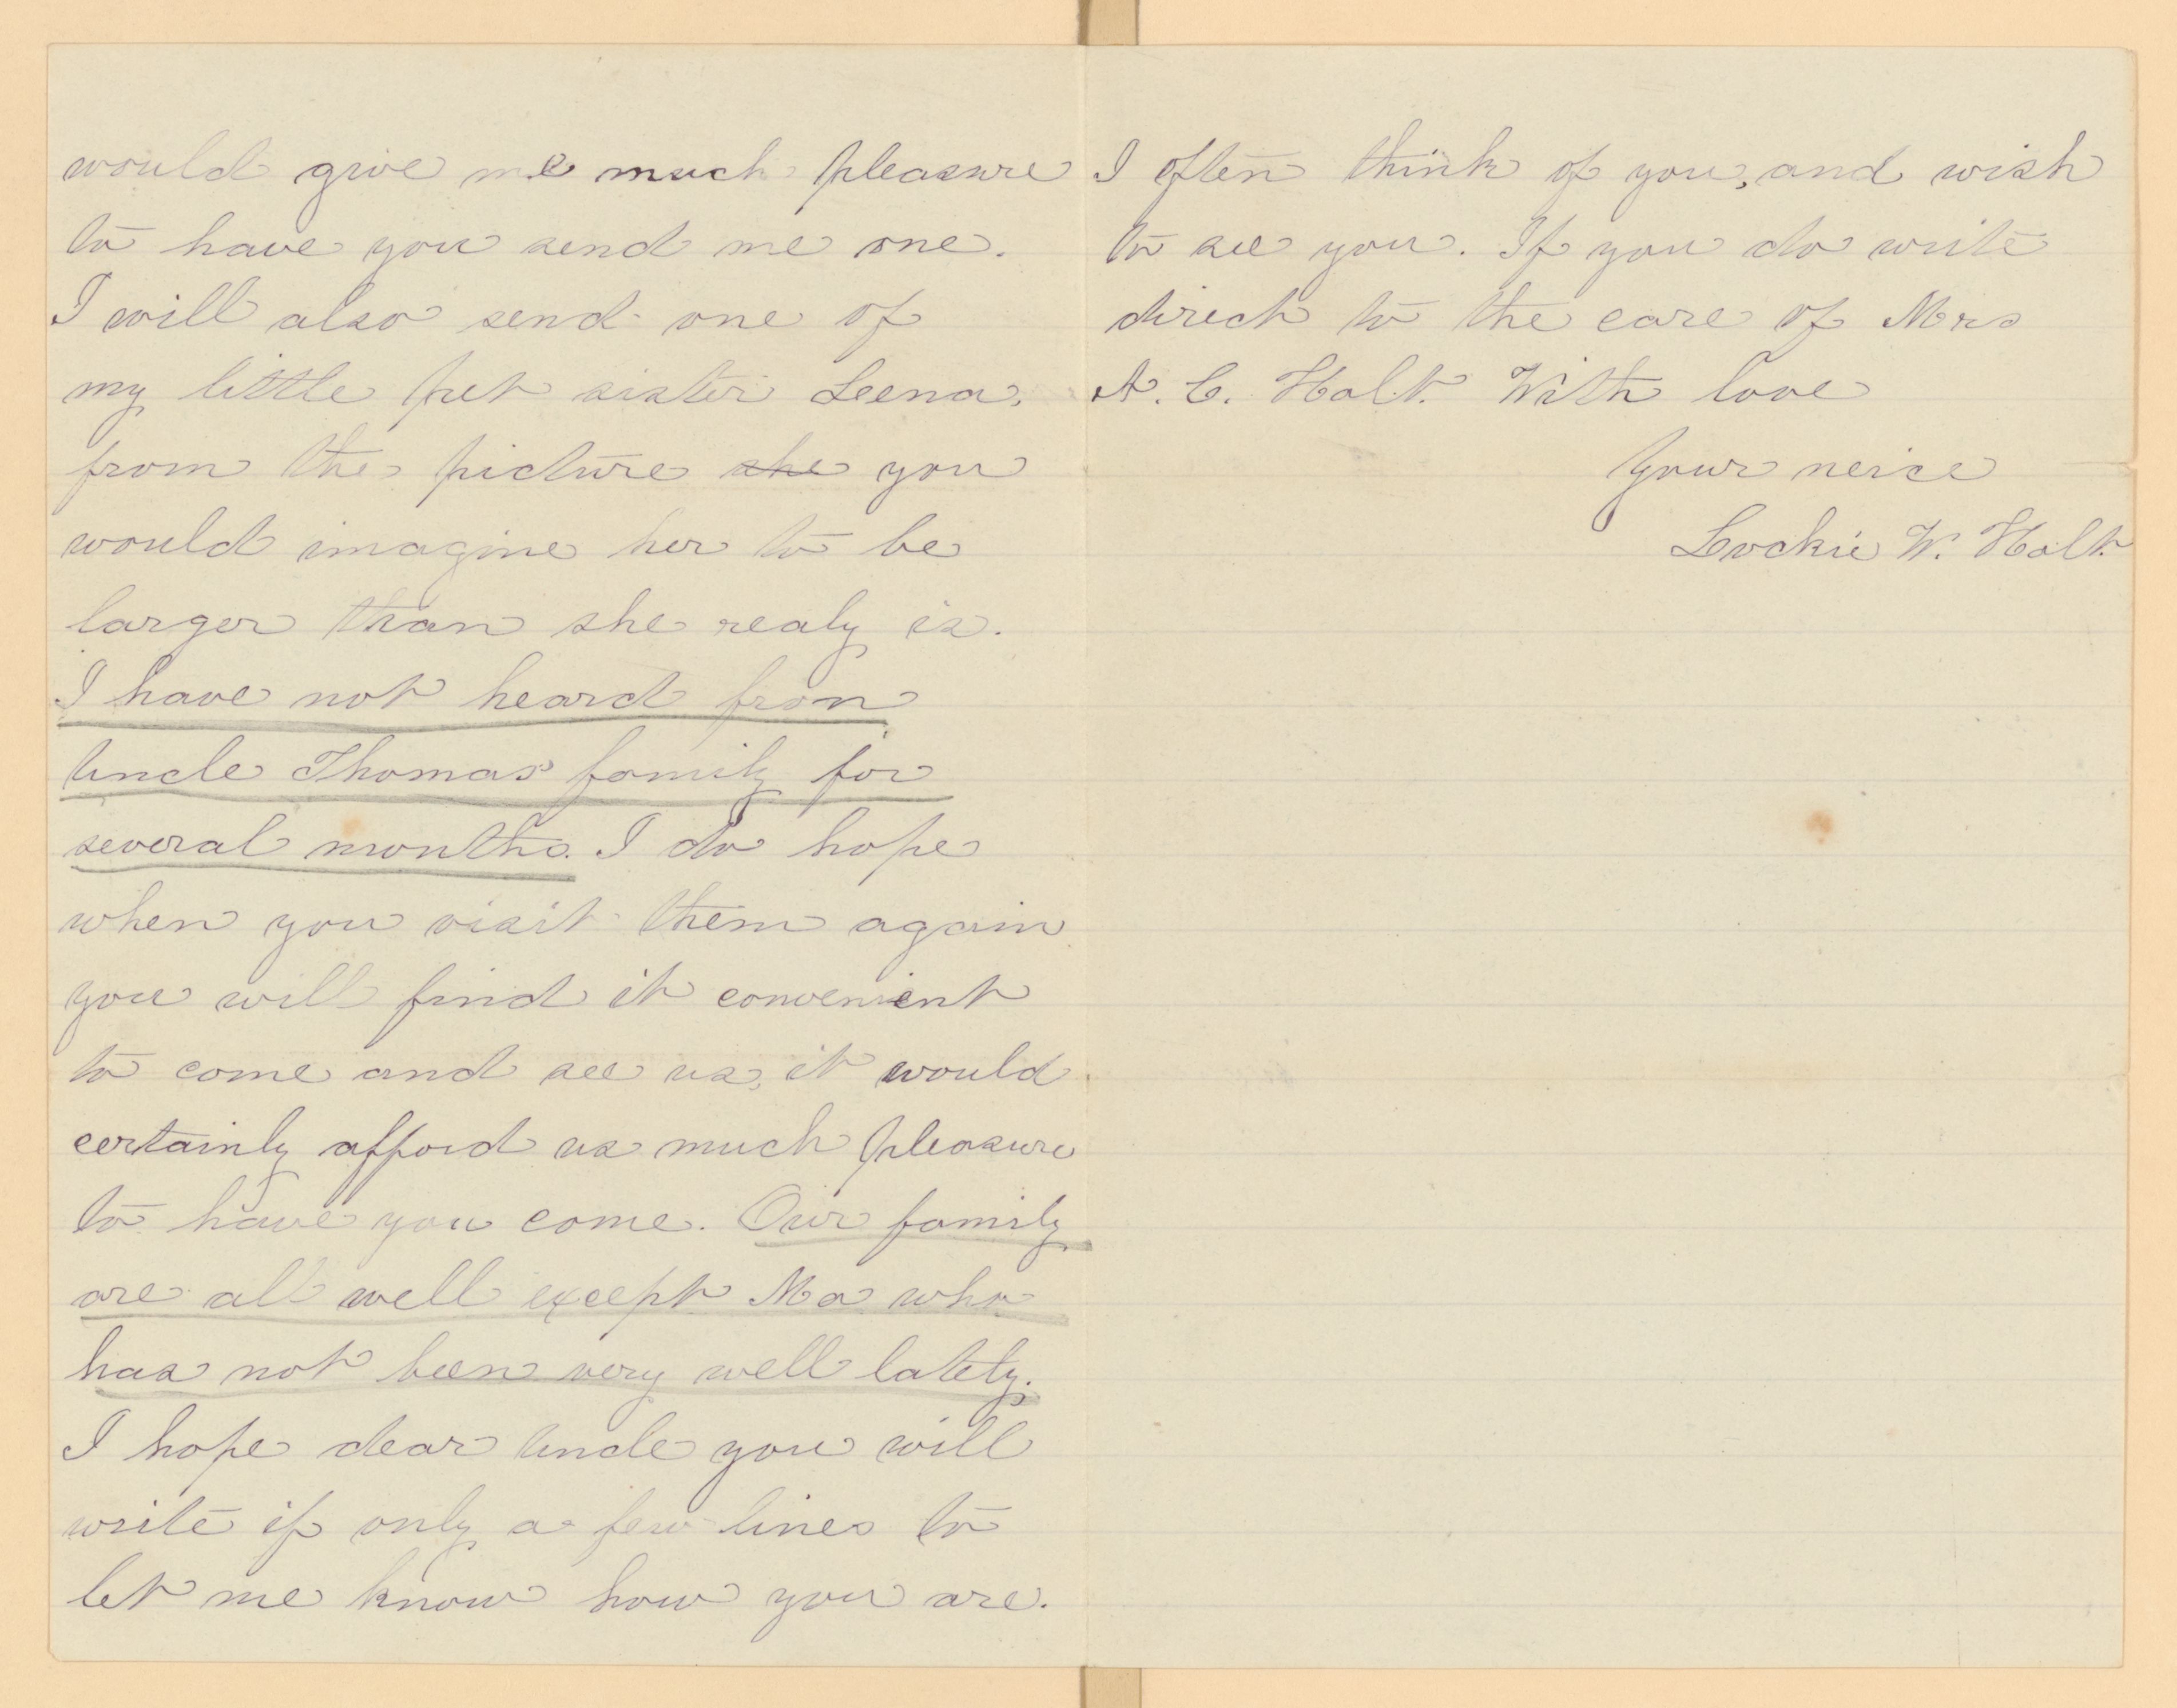 would give me much pleasure
to have you send me one.
I will also send one of
my little pet sister Leena,
from the picture she you
would imagine her to be
larger than she realy is.
I have not heard from
Uncle Thomas family for
several months. I do hope
when you visit them again
you will find it convenient
to come and see us, it would
certainly afford us much pleasure
to have you come. Our family
are all well except Ma who
has not been very well lately.
I hope dear Uncle you will
write if only a few lines to
let me know how you are.
I often think of you, and wish
to see you. If you do write
direct to the care of Mrs
A. C. Holt. With love
Your neice
Lockie W. Holt.